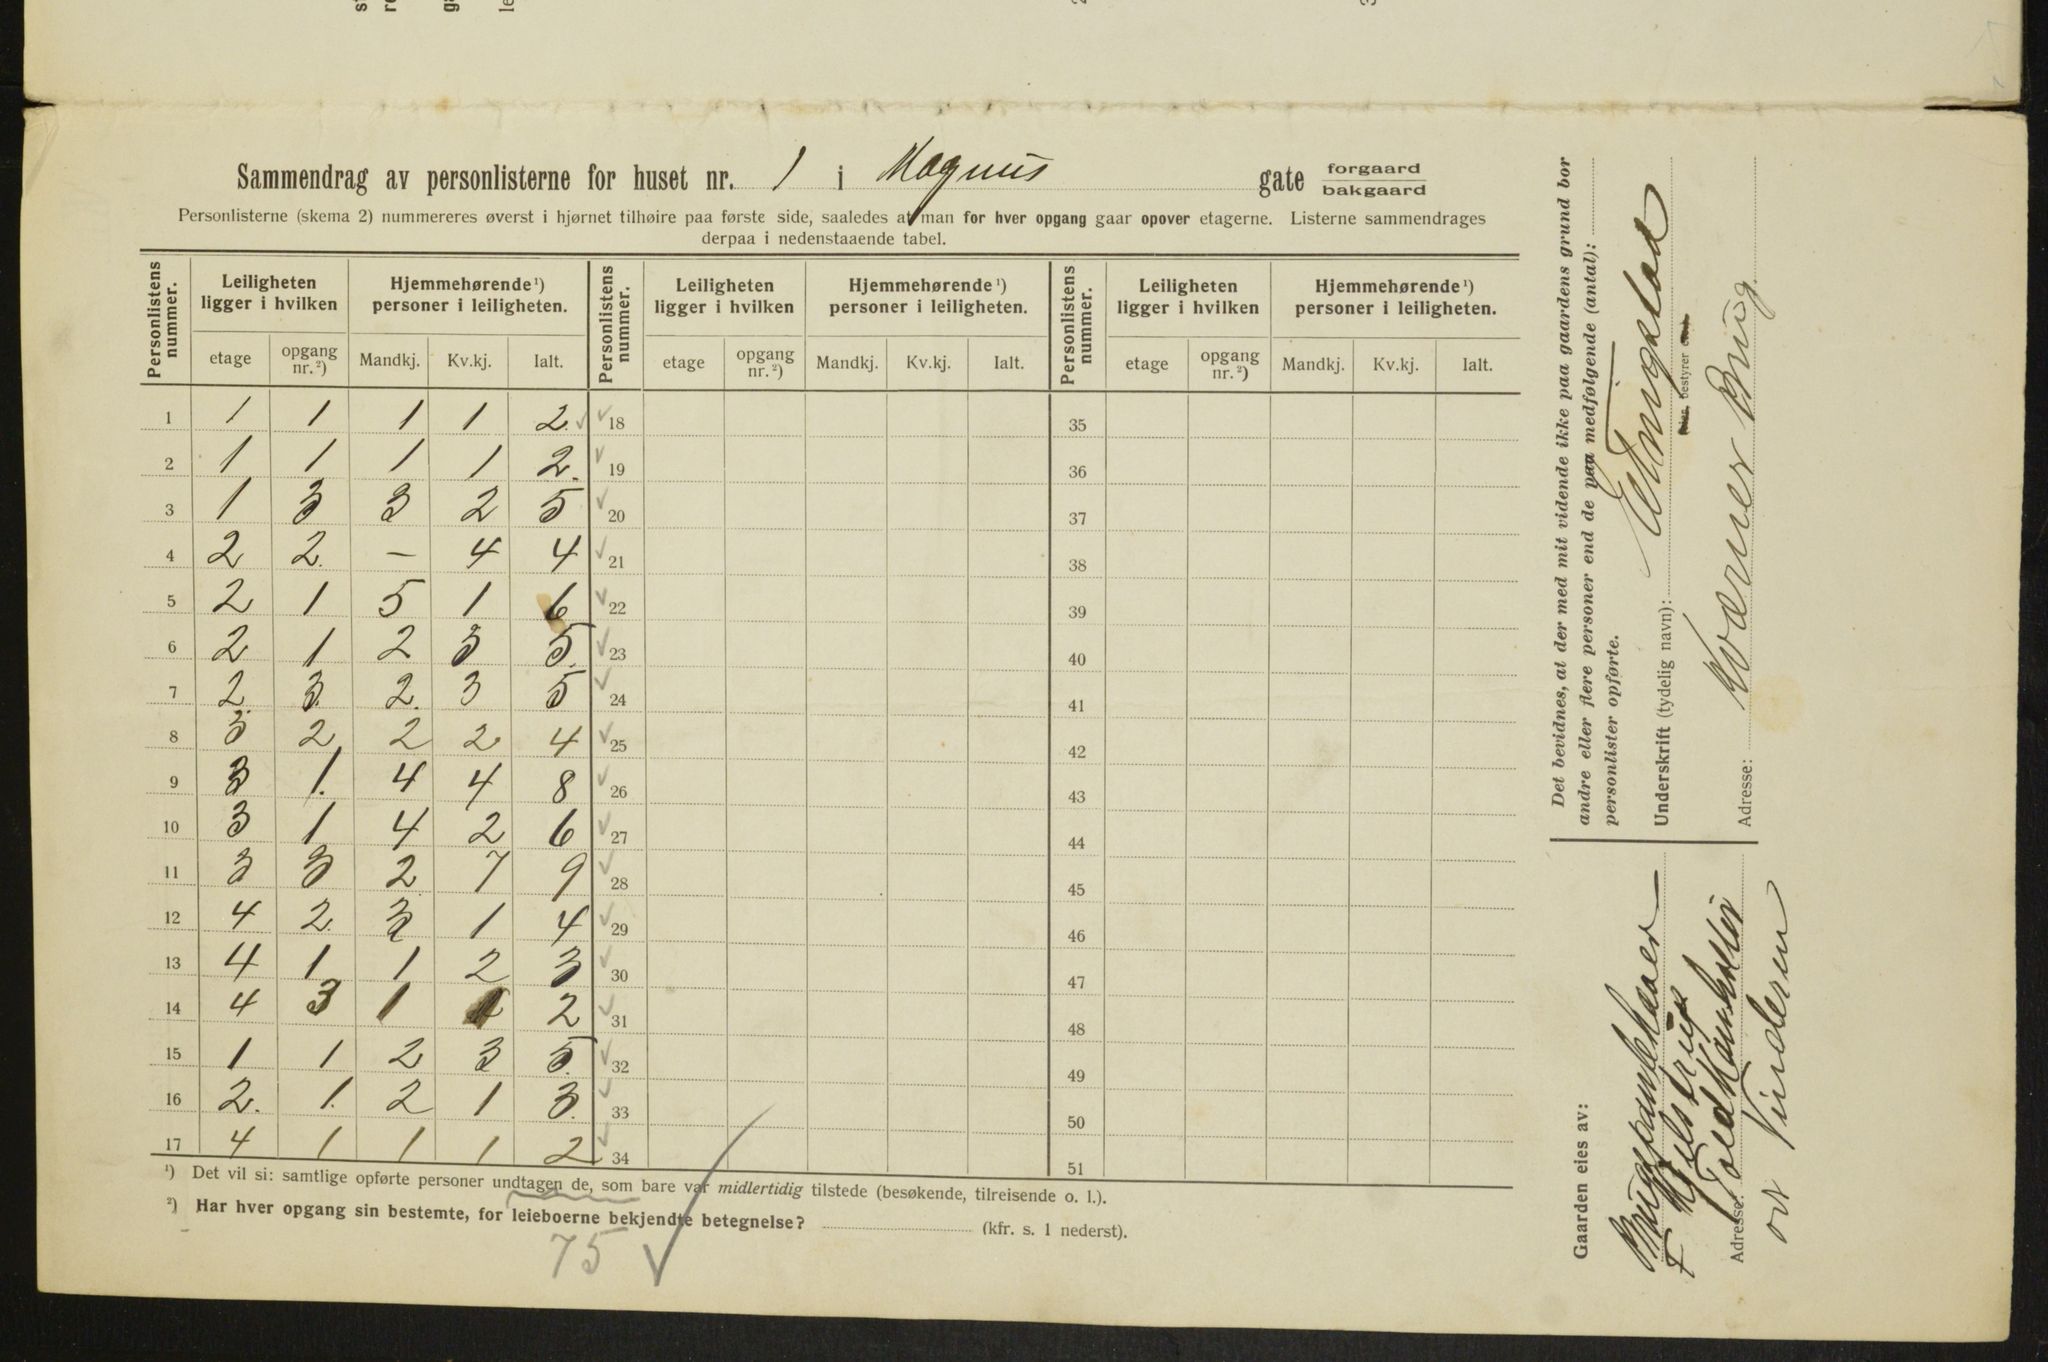 Sammendrag av personlisterne for huset nr. 1 i Magnus gate forgaard bakgaard
Personlisterne (skema 2) nummereres øverst i hjørnet tilhøire paa første side, saaledes at man for hver opgang gaar opover etagerne. Listerne sammendrages
derpaa i nedenstaaende tabel.
Personlistens nummer. Leiligheten ligger i hvilken Hjemmehørende ¹) personer i leiligheten. Personlistens nummer. Leiligheten ligger i hvilken Hjemmehørende ¹) personer i leiligheten. Personlistens nummer. Leiligheten ligger i hvilken Hjemmehørende ¹) personer i leiligheten.
etage opgang nr. ²) Mandkj. Kv.kj. Ialt. etage opgang nr. ²) Mandkj. Kv.kj. Ialt. etage opgang nr. ²) Mandkj. Kv.kj. Ialt.
1 1 1 1 1 2. 18 35
2 1 1 1 1 2. 19 36
3 1 3 3 2 5 20 37
4 2 2. – 4 4 21 38
5 2 1 5 1 6 22 39
6 2 1 2 3 5. 23 40
7 2. 3. 2. 3 5 24 41
8 3 2 2 2 4 25 42
9 3 1. 4 4 8 26 43
10 3 1 4 2 6 27 44
11 3 3 2 7 9 28 45
12 4 2. 3 1 4 29 46
13 4 1 1 2 3 30 47
14 4 3 1 1 2 31 48
15 1 1 2 3 5. 32 49
16 2. 1. 2 1 3. 33 50
17 4 1 1 1 2 34 51
¹) Det vil si: samtlige opførte personer undtagen de, som bare var midlertidig tilstede (besøkende, tilreisende o. l.).
²) Har hver opgang sin bestemte, for leieboerne bekjendte betegnelse? (kfr. s. 1 nederst).
75
Det bevidnes, at der med mit vidende ikke paa gaardens grund bor
andre eller flere personer end de paa medfølgende (antal):
personlister opførte.
Underskrift (tydelig navn):
bestyrer
Adresse: Kværner Brug.
Gaarden eies av:
Adresse:
Vinderen